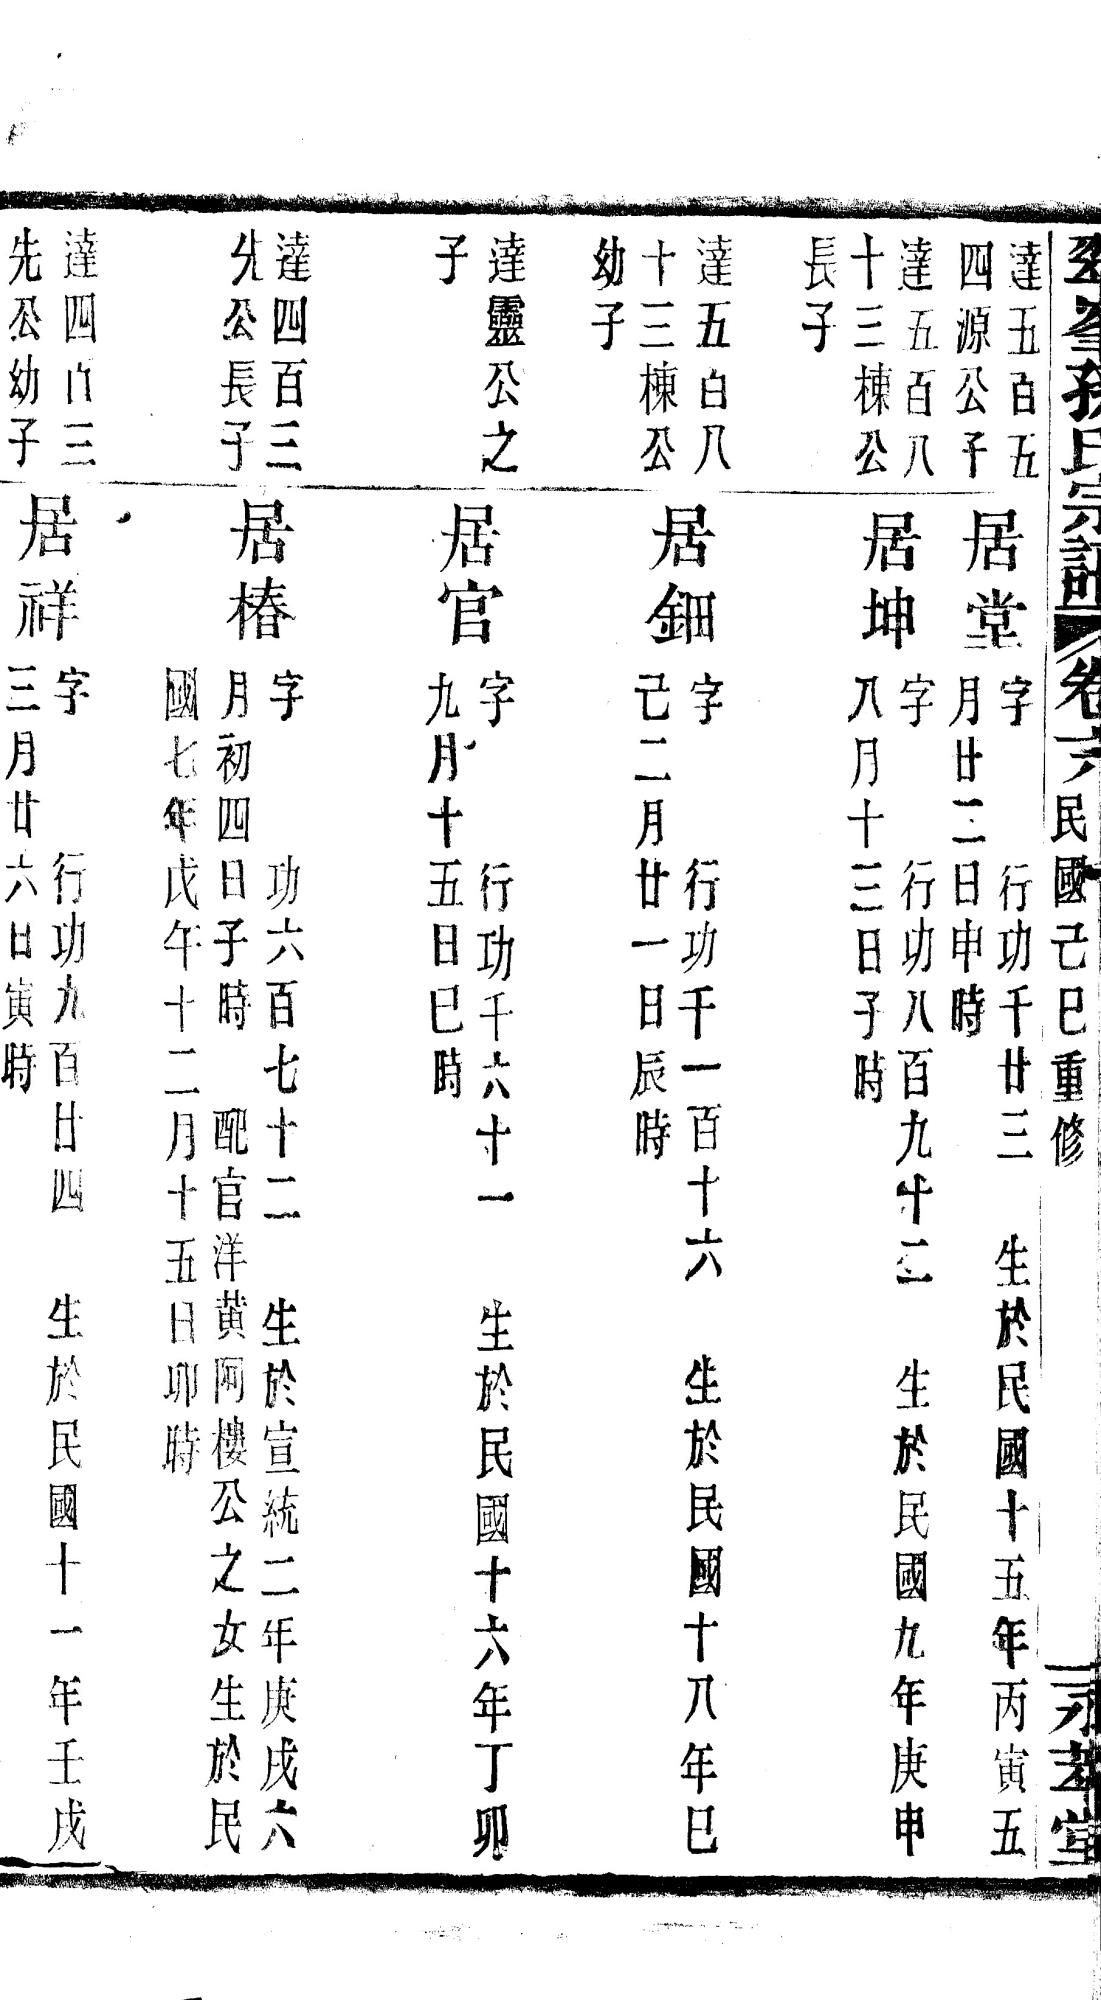 孫氏宗譜 卷六 民國己巳重修
堂
達五百五
四源公子
居堂
字 行功千廿三 生於民國十五年丙寅五
月廿二日申時
達五百八
十三棟公
長子
居坤
字 行功八百九十二 生於民國九年庚申
八月十三日子時
達五百八
十三棟公
幼子
居鈿
字 行功千一百十六 生於民國十八年巳
己二月廿一日辰時
達靈公之
子
居官
字 行功千六十一 生於民國十六年丁卯
九月十五日巳時
達四百三
先公長子
居椿
字 功六百七十二 生於宣統二年庚戌六
月初四日子時 配官洋黄阿樓公之女生於民
國七年戊午十二月十五日卯時
達四百三
先公幼子
居祥
字 行功九百廿四 生於民國十一年壬戌
三月廿六日寅時